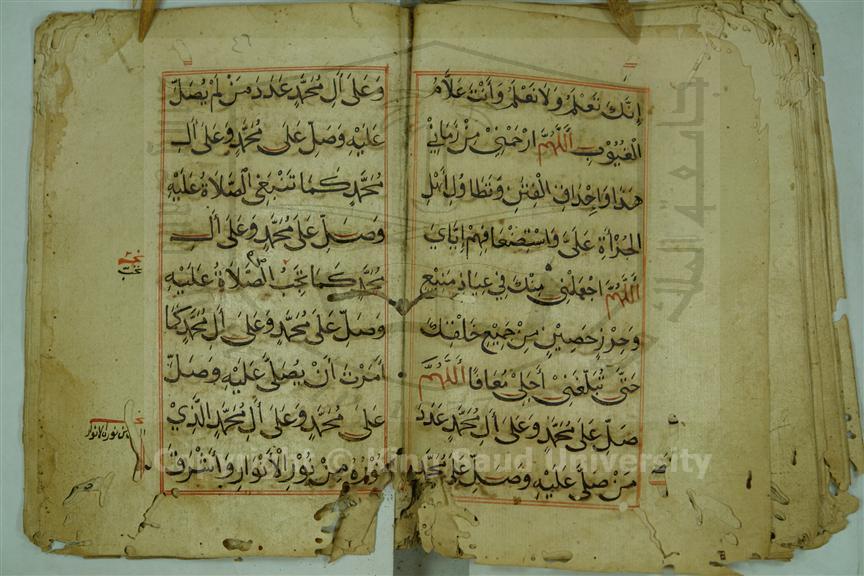 إِنَّكَ تَعْلَمُ وَلَا نَعْلَمُ وَأَنْتَ عَلَّامُ
الْغُيُوْبِ اَللّٰهُمَّ ارْحَمْنِيْ مِنْ زَمَانِيْ
هٰذَا وَاِحْدَاقِ الْفِتَنِ وَتَطَاوُلِ اَهْلِ
الْجُرْأَةِ عَلَيَّ وَاسْتِضْعَافِهِمْ اِيَّايَ
اَللّٰهُمَّ اجْعَلْنِيْ مِنْكَ فِي عِيَاذٍ مَنِيْعٍ
وَحِرْزٍ حَصِيْنٍ مِنْ جَمِيْعِ خَلْقِكَ
حَتّٰى تُبَلِّغَنِيْ اَجَلِيْ مُعَافًا اَللّٰهُمَّ
صَلِّ عَلٰى مُحَمَّدٍ وَعَلٰى اٰلِ مُحَمَّدٍ عَدَدَ
مَنْ صَلّٰى عَلَيْهِ وَصَلِّ عَلٰى مُحَمَّدٍ
٤٦
وَعَلٰى اٰلِ مُحَمَّدٍ عَدَدَ مَنْ لَمْ يُصَلِّ
عَلَيْهِ وَصَلِّ عَلٰى مُحَمَّدٍ وَعَلٰى اٰلِ
مُحَمَّدٍ كَمَا تَنْبَغِي الصَّلَاةُ عَلَيْهِ
وَصَلِّ عَلٰى مُحَمَّدٍ وَعَلٰى اٰلِ
مُحَمَّدٍ كَمَا تَجِبُ الصَّلَاةُ عَلَيْهِ
وَصَلِّ عَلٰى مُحَمَّدٍ وَعَلٰى اٰلِ مُحَمَّدٍ كَمَا
اَمَرْتَ اَنْ يُصَلّٰى عَلَيْهِ وَصَلِّ
عَلٰى مُحَمَّدٍ وَعَلٰى اٰلِ مُحَمَّدٍ الَّذِيْ
نُوْرُهُ مِنْ نُوْرِ الْاَنْوَارِ وَاَشْرَقَ
جامعة الملك
Copyright © King Saud University